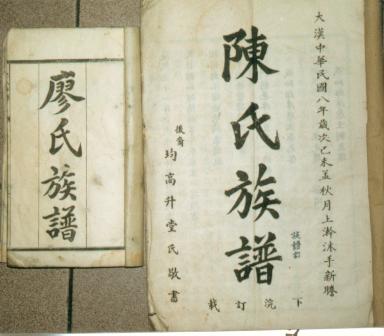 大漢中華民國八年歲次己未孟秋月上澣沐手新謄
陳氏族譜
後裔
均高升堂氏敬書
下浣訂裁
廖氏族譜